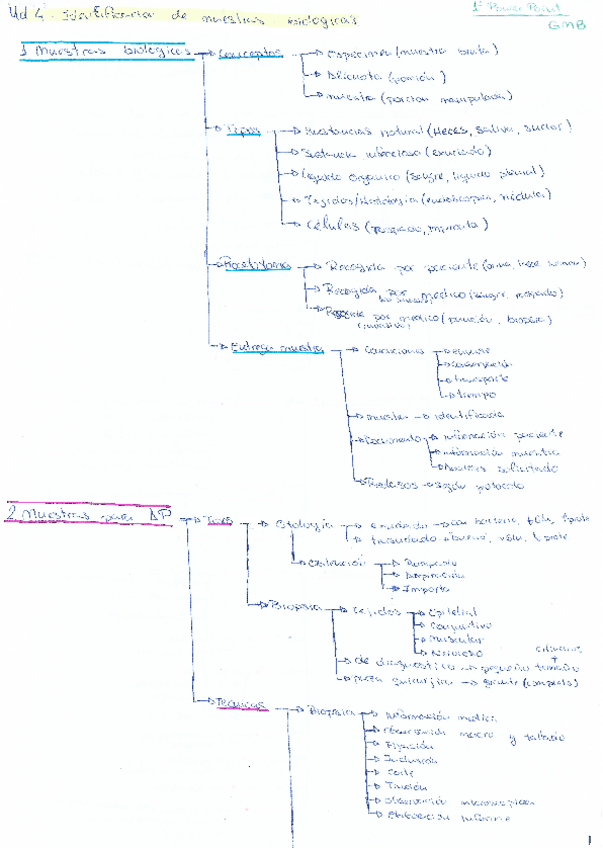 Ud 4. Identificación de muestras biológicas
1º Power Point
GMB
1 Muestras biológicas → Conceptos → espécimen (muestra bruta)
→ Alicuota (porción)
→ muestra (porción manipulada)
→ Tipos → Sustancias natural (Heces, saliva, sudor)
→ Sustancia infecciosa (exudado)
→ Líquido orgánico (sangre, líquido pleural)
→ Tejidos/Histología (endoscopia, médula)
→ Células (raspado, impronta)
→ Recogida por paciente (orina, heces, semen)
→ Recogida por médico (sangre, raspado)
→ Recogida por médico (punción, biopsia)
→ Entrega muestra → Condiciones → envase
→ conservación
→ transporte
→ tiempo
→ muestra → identificada
→ Documento → información paciente
→ información muestra
→ análisis solicitado
→ según protocolo
2 Muestras para AP → Tipos → Citología → exudado →
→ trasudado
→ obtención → Raspado
→ Aspiración
→ Impronta
→ Biopsia → tejidos → Epitelial
→ Conjuntivo
→ Muscular
→ Nervioso
→ de diagnóstico → pequeño tamaño
→ pieza quirúrgica → grande (completo)
→ Técnicas → Biopsia → información médica
→ observación macro y tallado
→ Fijación
→ Inclusión
→ Corte
→ Tinción
→ observación microscópica
→ elaboración informe
1